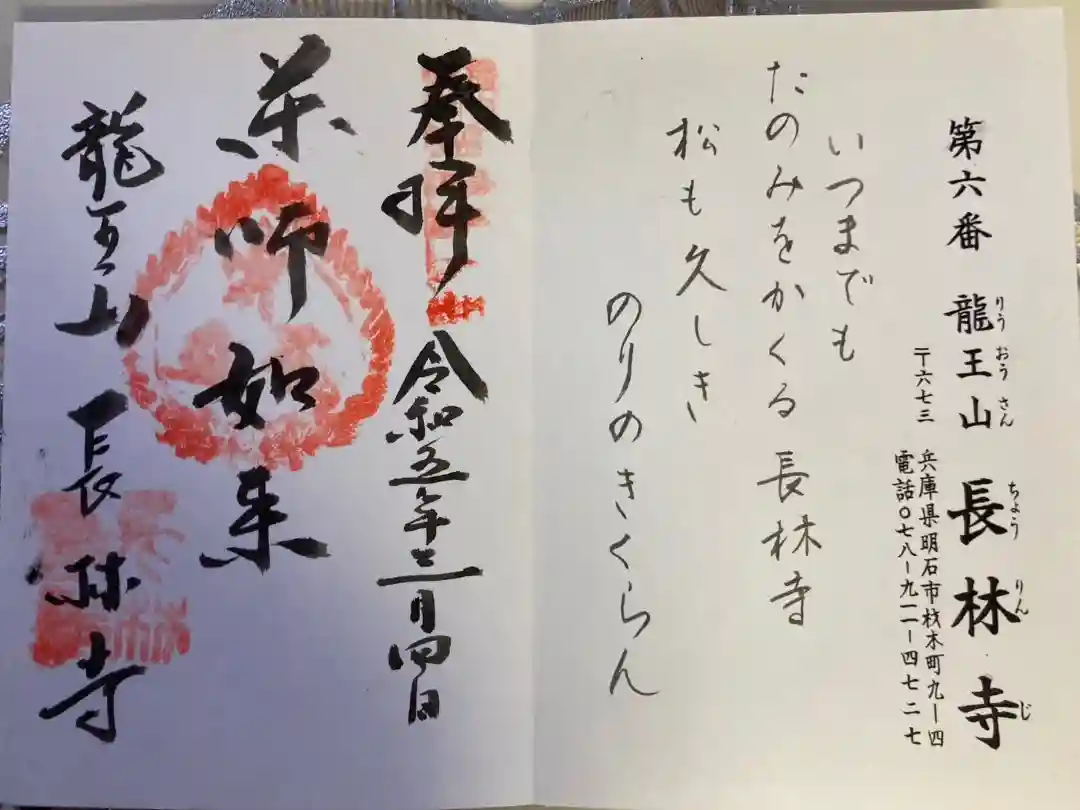 第六番 龍王山 長林寺
りうおうさん ちょうりんじ
〒六七三 兵庫県明石市材木町九ー四
電話〇七八ー九一一ー四七二七
いつまでも
たのみをかくる長林寺
松も久しき
のりのきくらん
奉拝 令和五年三月四日
薬師如来
龍王山 長林寺